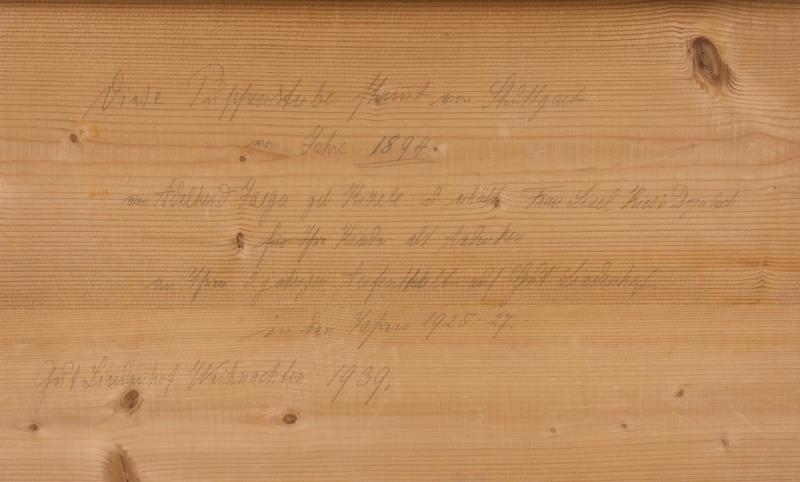 Diese Puppenstube stammt von Stuttgart
vom Jahre 1894.
von Adelheid geb u erhält Frau Liesel
für Ihre Kinder als Andenken
an Ihren 2 jährigen Aufenthalt auf Gut Lindenhof
in den Jahren 1925-27.
Gut Lindenhof Weihnachten 1939.